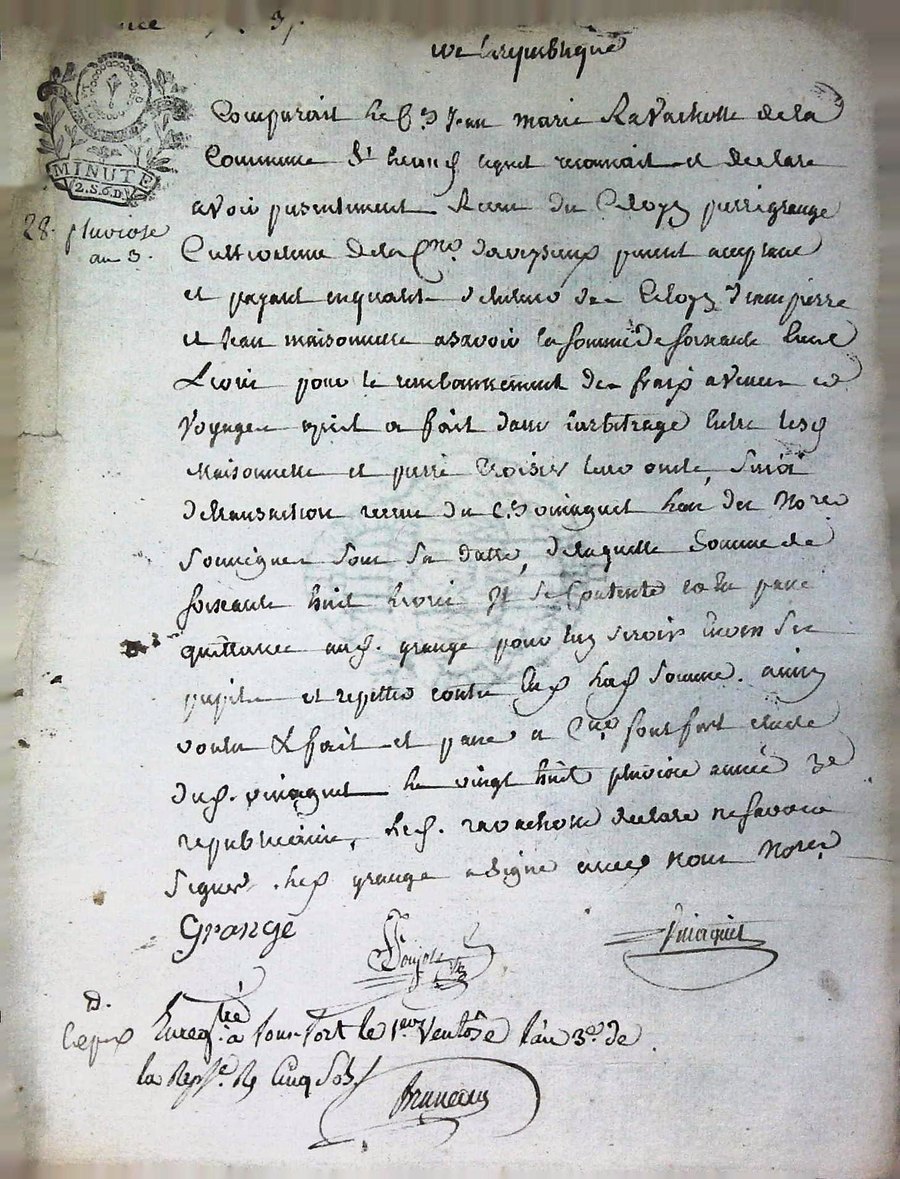 de la republique
MINUTE
2.S.6.D.
28. pluviose
an 3.
Comparait le C.en Jean marie Ravachotte de la
Commune St lequel reconnait et declare
avoir presentement Receu du Citoyen pierre grange
Cultivateur de la C.ne daveyzieux present acceptant
et payant en qualite de tuteur des Citoyens Jean pierre
et Jean maisonnette assavoir la somme de soixante huit
Livres pour le remboursement des fraix avances et
Voyages quil a fait dans larbitrage Entre lesd
Maisonnette et pierre leur oncle, suivi
de transaction receue du C.en vinaguet lun des No.res
soussignes sous sa datte, de laquelle Somme de
soixante huit livres Il se Contente et En passe
quittance aud. grange pour luy servir Envers ses
pupiles et repetter contre Eux lad Somme. ainsy
voulu & fait et passé a font fort etude
dud. vinaguet le vingt huit pluviose année 3e
republicaine, led. ravachotte declare ne savoir
signer. led grange a signé avec nous No.res
Grange
vinaguet
D.
Enreg.tré a font-fort le 1.er Ventôse l'an 3.e de
la Rep.e R. Cinq Sols